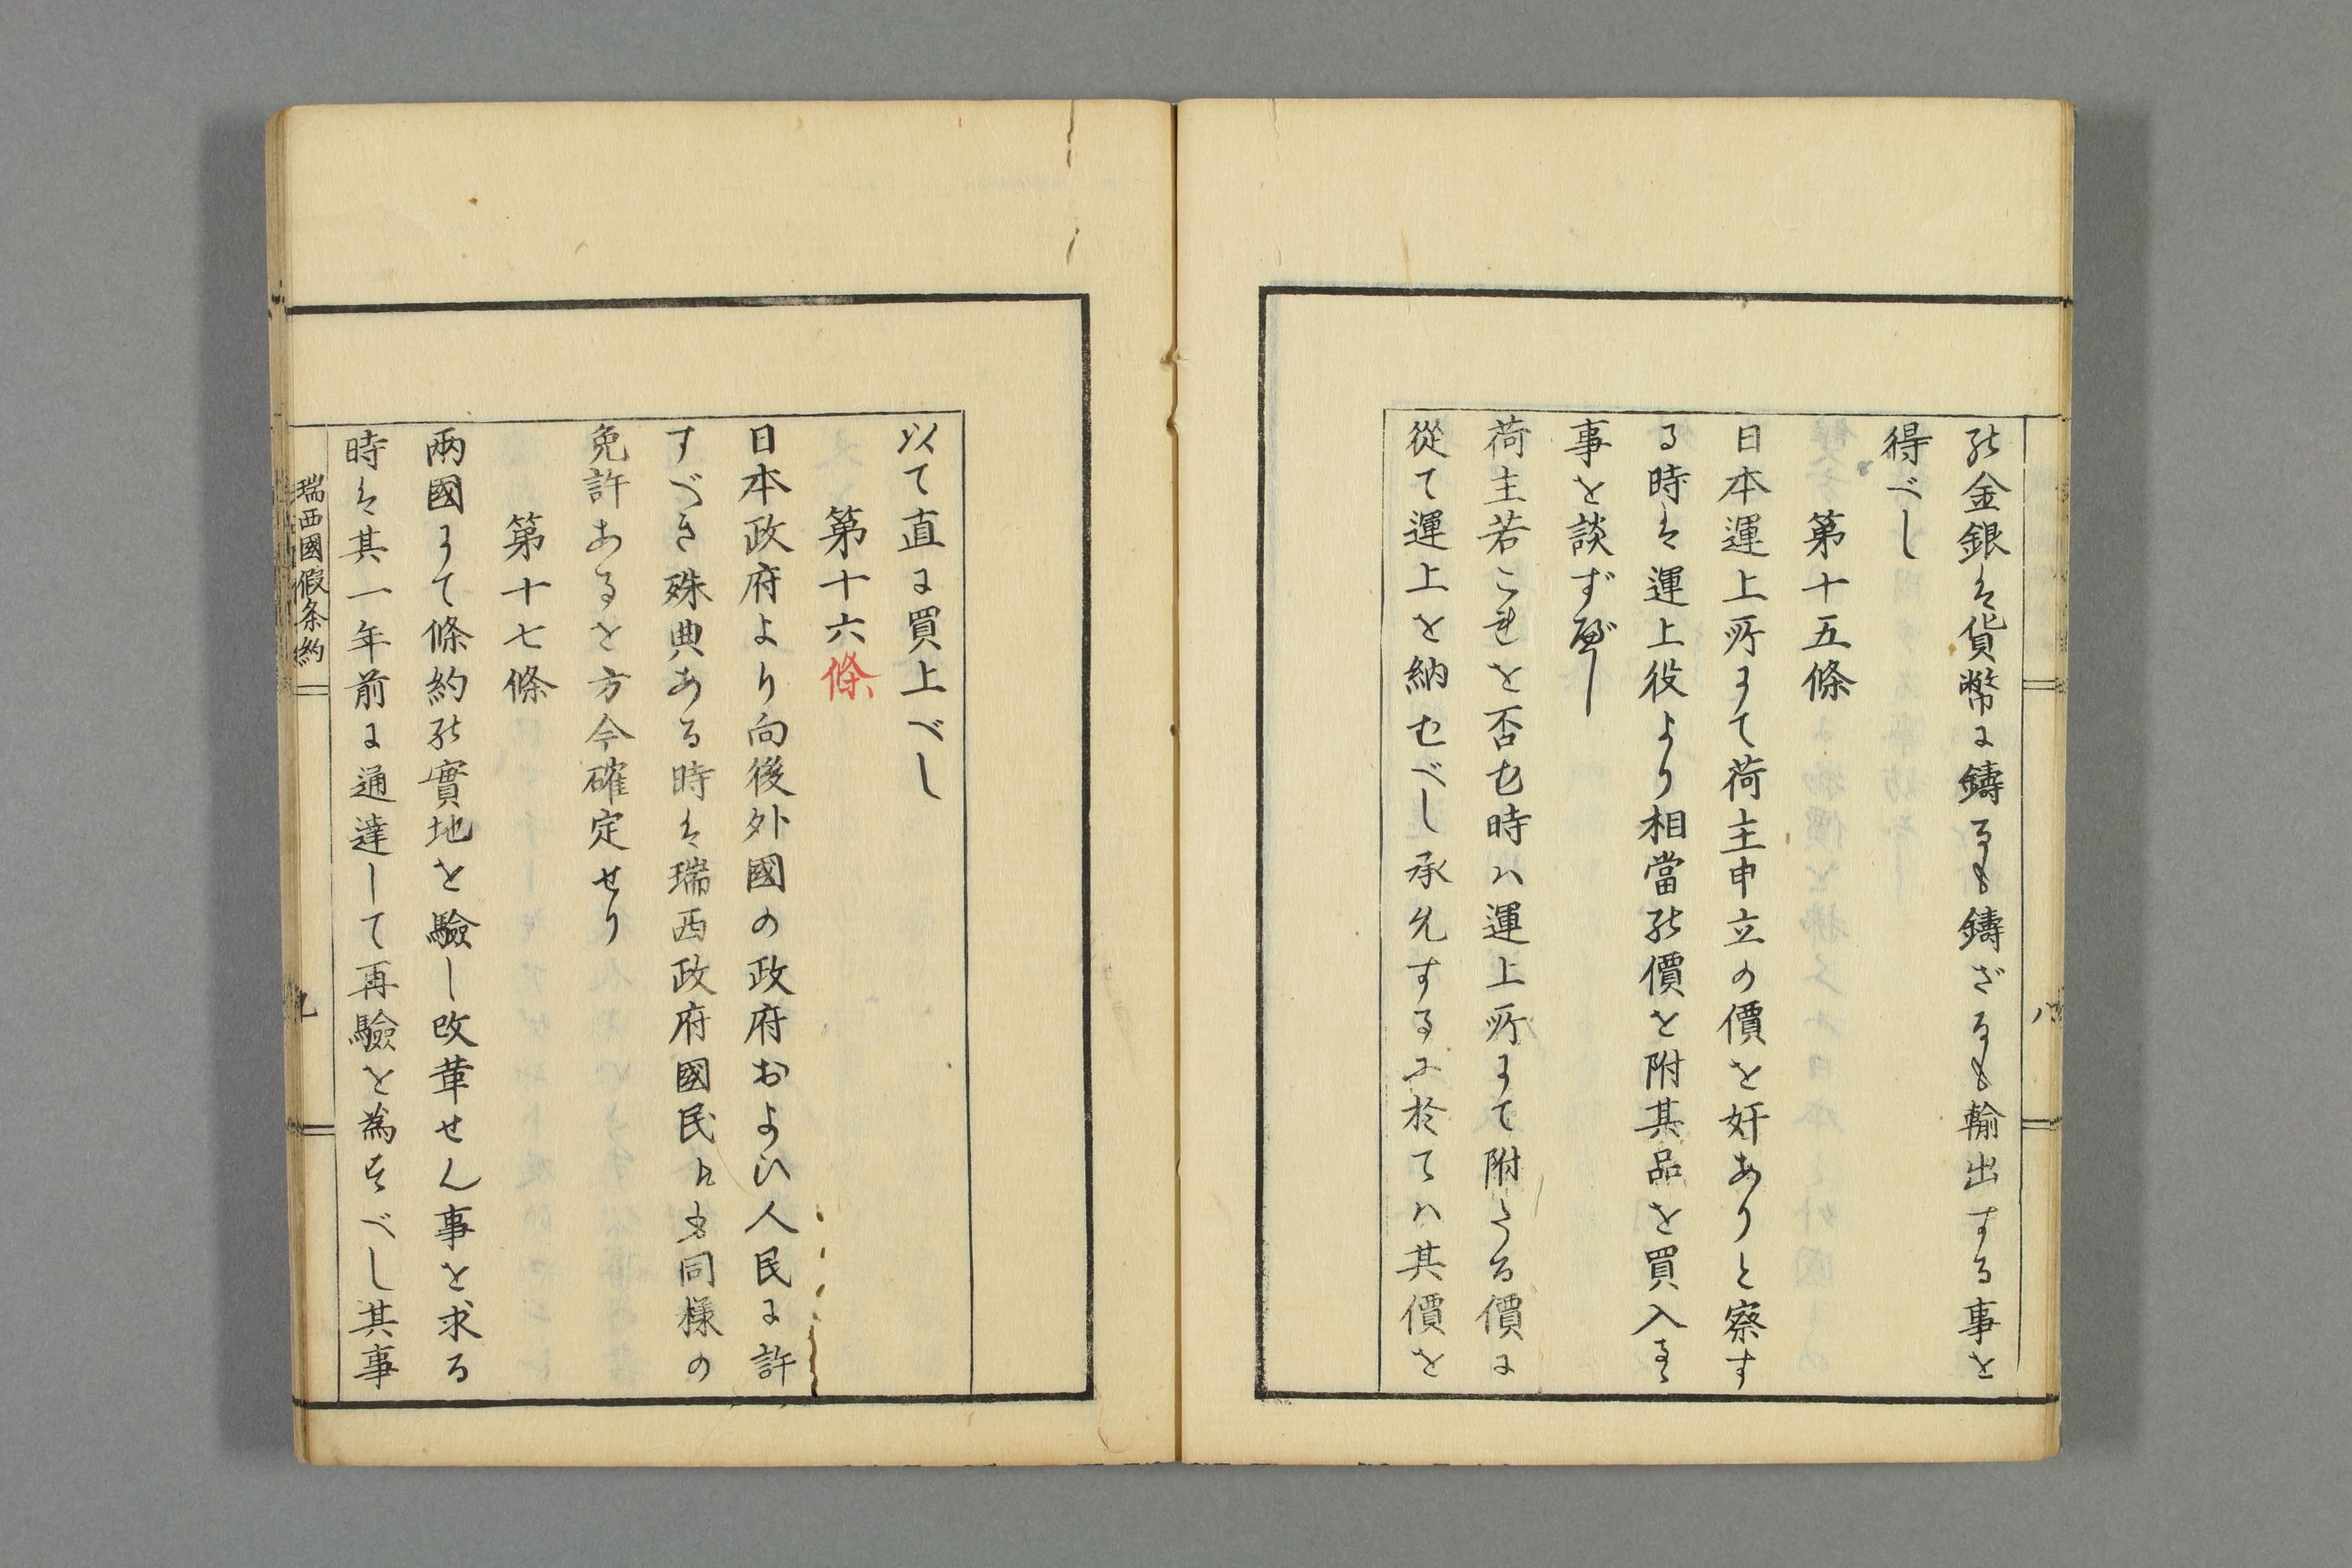 能金銀ハ貨幣に鑄るも鑄ざるも輸出する事を
得べし
第十五條
日本運上所にて荷主申立の價を奸ありと察す
る時ハ運上役より相當能價を附其品を買入る
事を談ずべし
荷主若これを否む時ハ運上所にて附たる價に
從て運上を納むべし承允するに於てハ其價を
八
以て直に買上べし
第十六條
日本政府より向後外國の政府および人民に許
すべき殊典ある時ハ瑞西政府國民にも同様の
免許あるを方今確定せり
第十七條
兩國にて條約能實地を驗し改革せん事を求る
時ハ其一年前に通達して再驗を為すべし其事
瑞西國假条約
九